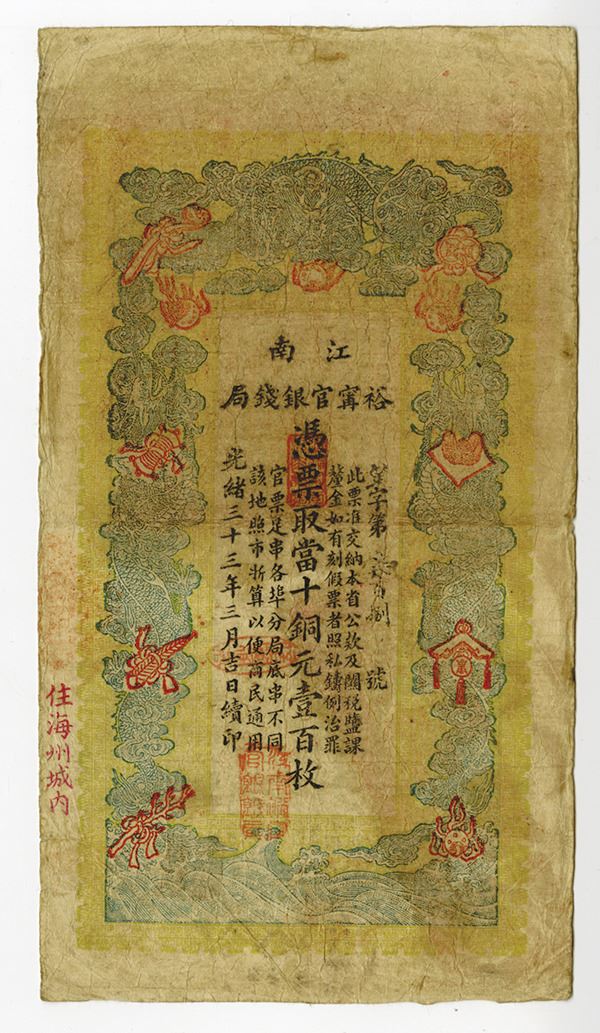 江南
裕甯官銀錢局
字第 捌 號
此票准交納本省公欵及關稅鹽課
釐金如有刻假票者照私鑄例治罪
憑票取當十銅元壹百枚
官票足串各埠分局底串不同
該地照市折算以便商民通用
光緒三十三年三月吉日續印
住海州城内